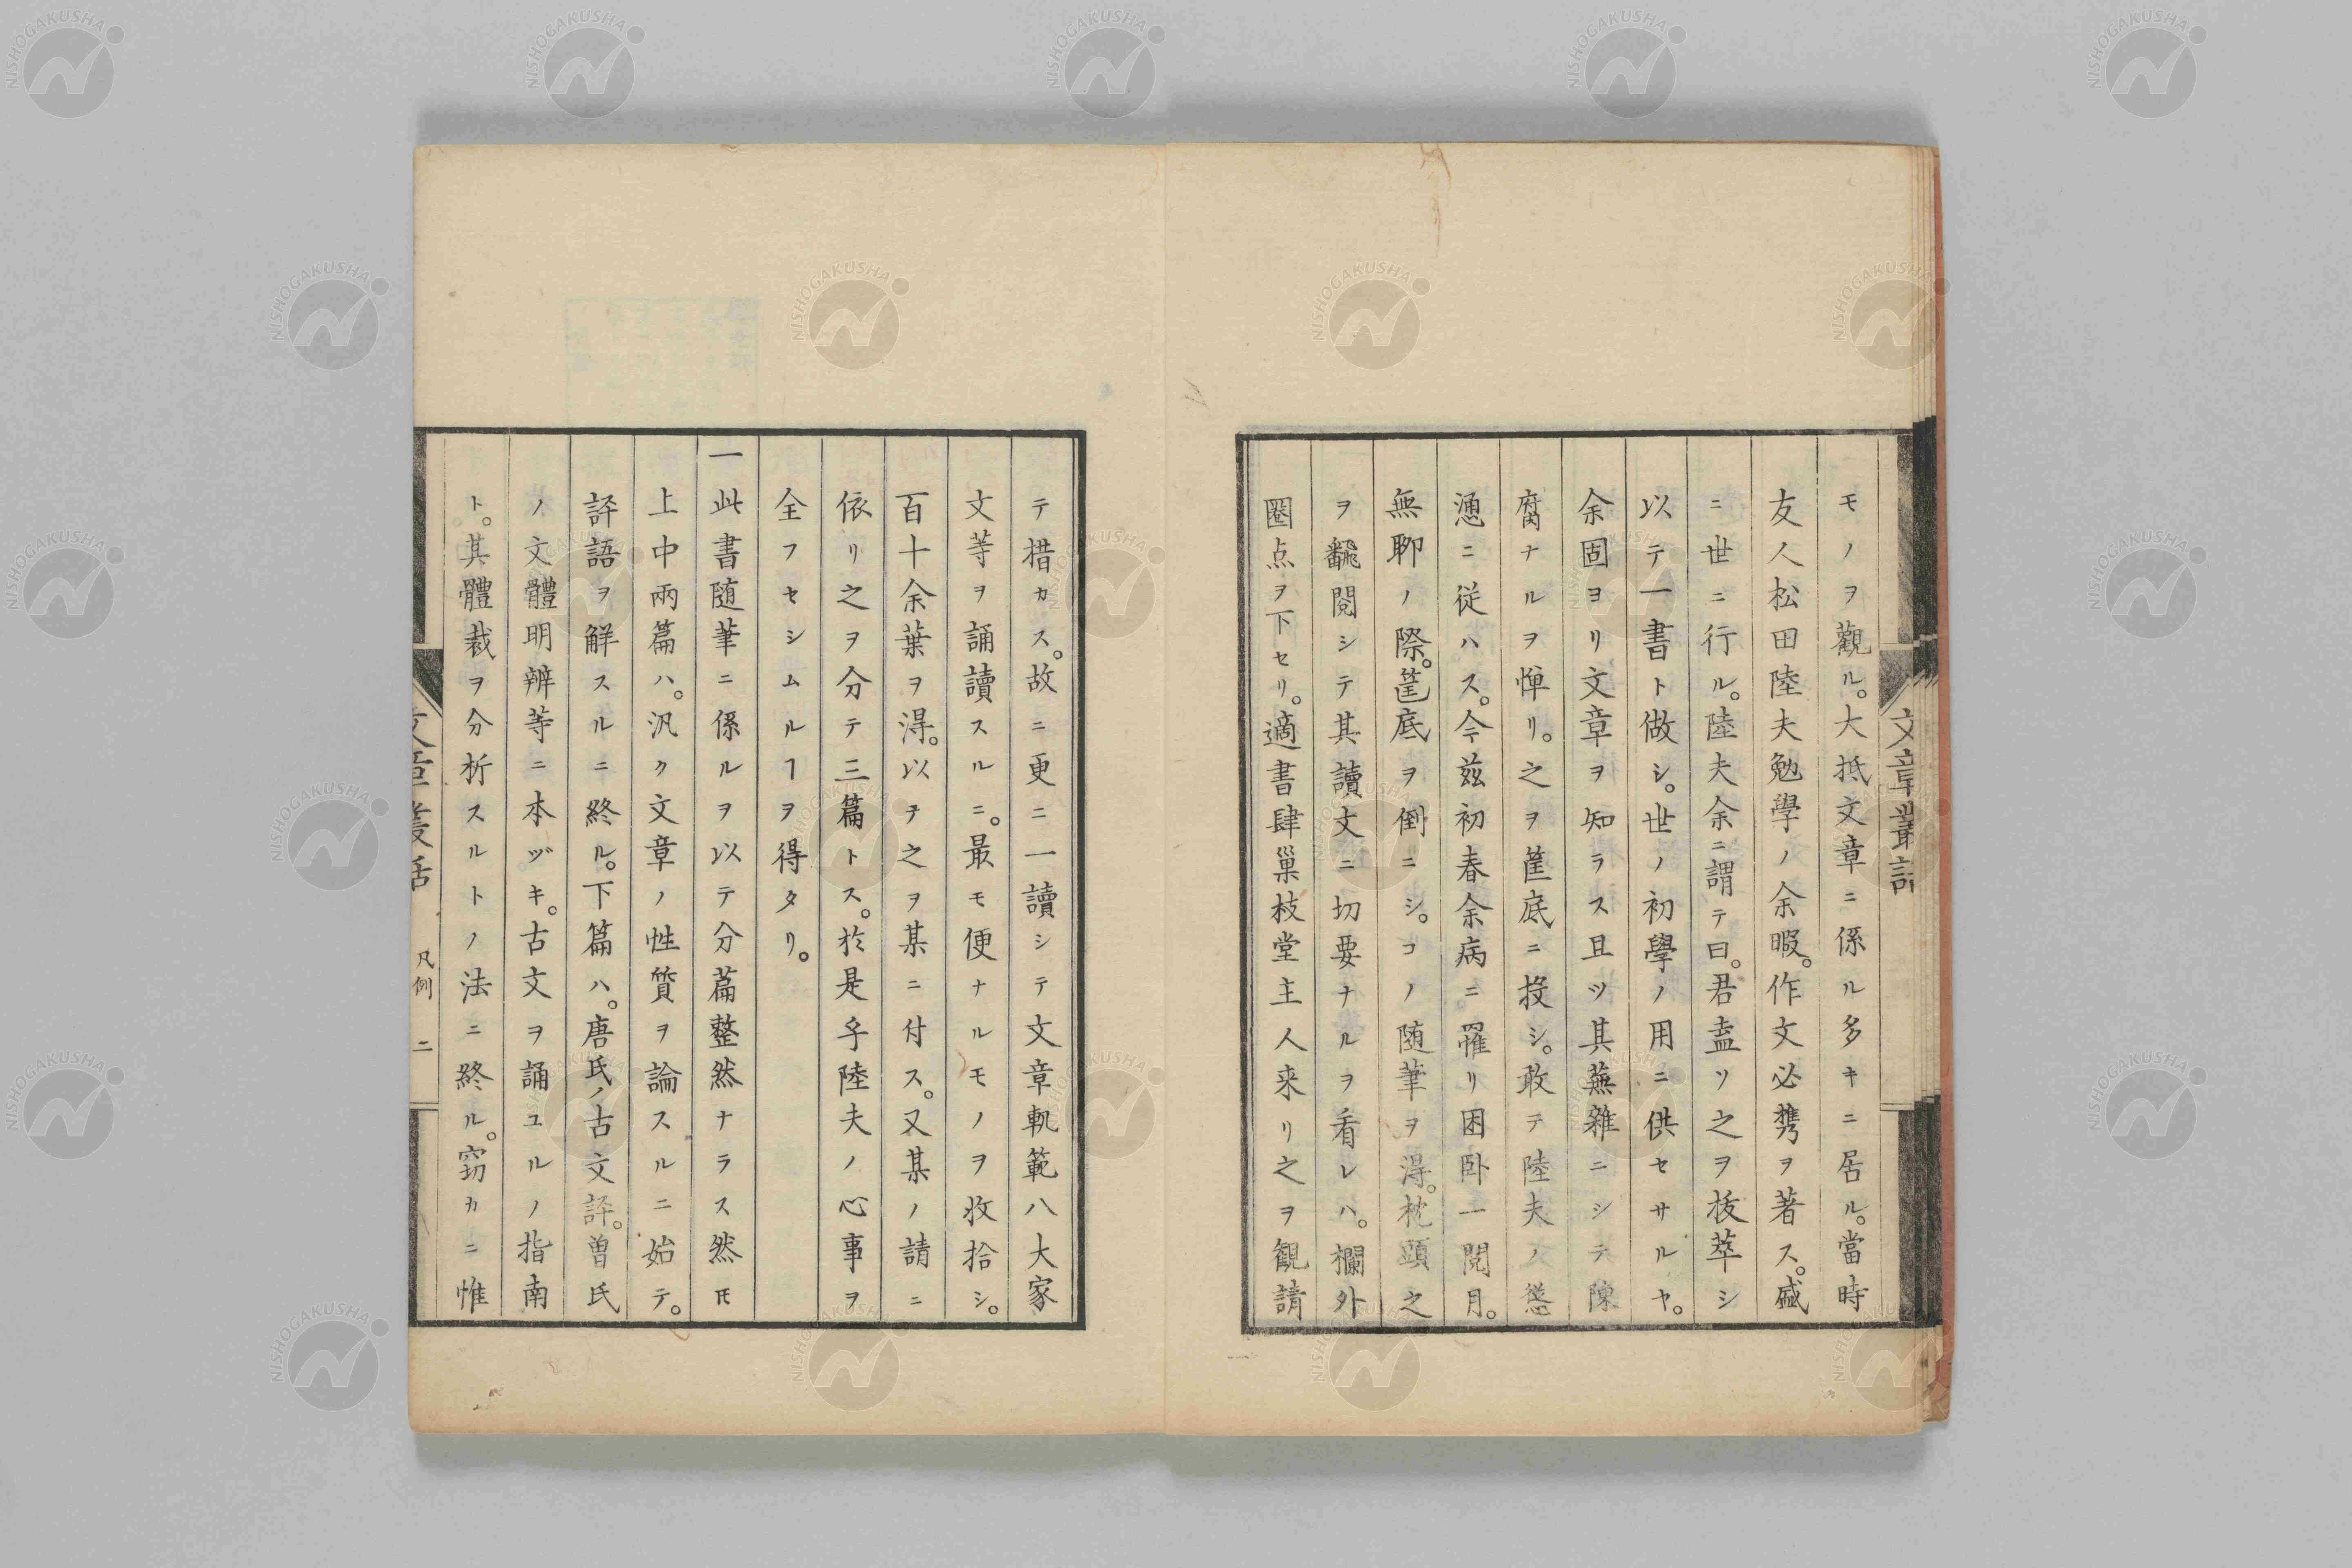 モノヲ觀ル。大抵文章ニ係ル多キニ居ル。當時
友人松田陸夫勉學ノ余暇。作文必携ヲ著ス。盛
ニ世ニ行ル。陸夫余ニ謂テ曰。君盍ソ之ヲ抜萃シ
以テ一書ト做シ。世ノ初學ノ用ニ供セサルヤ。
余固ヨリ文章ヲ知ラス且ツ其蕪雑ニシテ陳
腐ナルヲ憚リ。之ヲ筐底ニ投シ。敢テ陸夫ノ慫
慂ニ従ハス。今茲初春余病ニ罹リ困卧一閲月。
無聊ノ際。筐底ヲ倒ニシ。コノ随筆ヲ淂。枕頭之
ヲ飜閲シテ其讀文ニ切要ナルヲ看レハ。欄外
圏点ヲ下セリ。適書肆巣枝堂主人来リ之ヲ観請
テ措カス。故ニ更ニ一讀シテ文章軌範八大家
文等ヲ誦讀スルニ。最モ便ナルモノヲ收拾シ。
百十余葉ヲ淂。以テ之ヲ某ニ付ス。又某ノ請ニ
依リ之ヲ分テ三篇トス。於是乎陸夫ノ心事ヲ
全フセシムルヿヲ得タリ。
一此書随筆ニ係ルヲ以テ分篇整然ナラス然𪜈
上中兩篇ハ。汎ク文章ノ性質ヲ論スルニ始テ。
評語ヲ解スルニ終ル。下篇ハ。唐氏ノ古文評。曽氏
ノ文體明辨等ニ本ヅキ。古文ヲ誦ユルノ指南
ト。其體裁ヲ分析スルトノ法ニ終ル。窃カニ惟
文章叢話 凡例 二